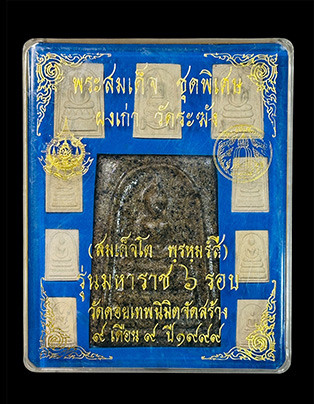 พระสมเด็จ ชุดพิเศษ
ผงเก่า วัดระฆัง
(สมเด็จโต พรหมรังสี)
รุ่นมหาราช ๖ รอบ
วัดดอยเทพนิมิตจัดสร้าง
๙ เดือน ๙ ปี ๑๙๙๙